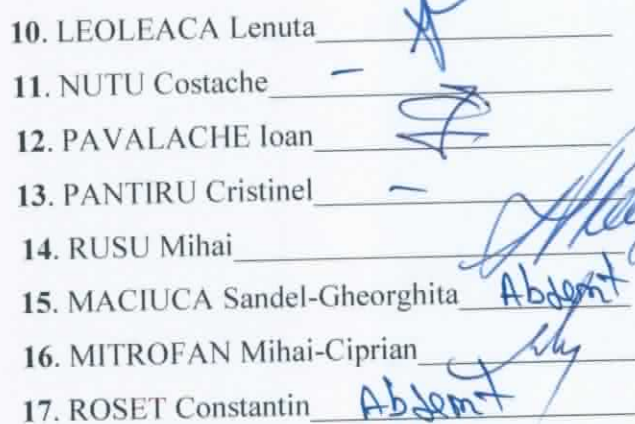 10. LEOLEACA Lenuta
11. NUTU Costache -
12. PAVALACHE Ioan
13. PANTIRU Cristinel -
14. RUSU Mihai
15. MACIUCA Sandel-Gheorghita Absent
16. MITROFAN Mihai-Ciprian
17. ROSET Constantin Absent